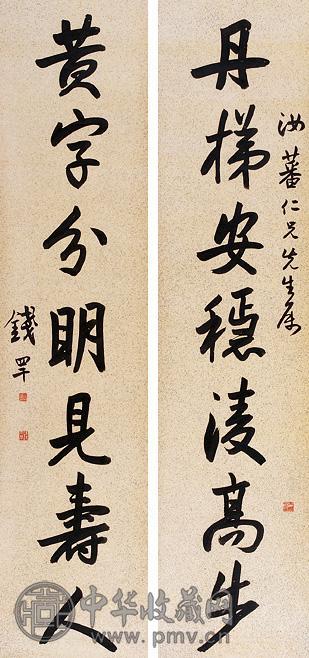 汝蕃仁兄先生属
丹梯安穩淩高步
黄字分明見壽人
錢罕
中华收藏网
www.pmv.cn